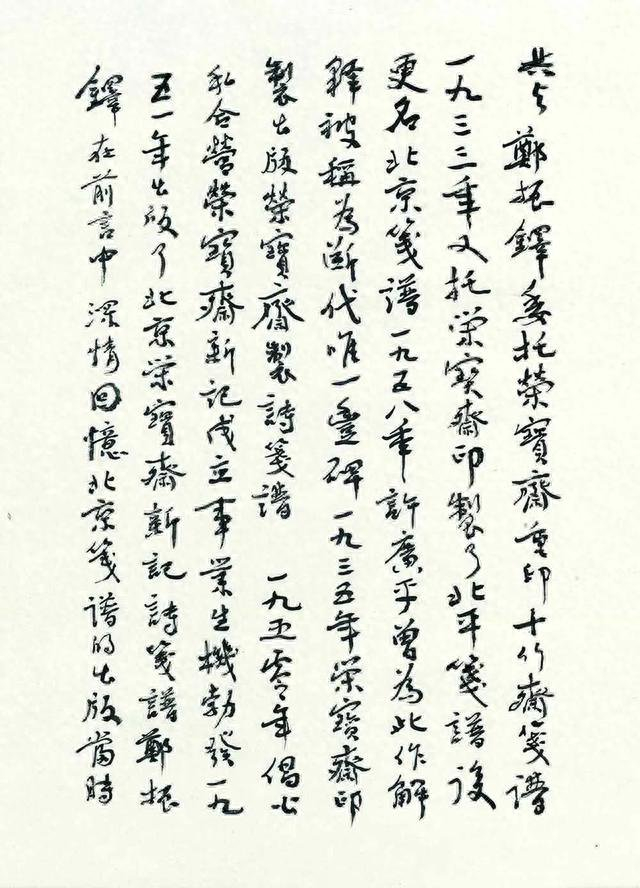 共与鄭振鐸委托榮寶齋重印十竹齋箋譜
一九三三年又托榮寶齋印製了北平箋譜後
更名北京箋譜一九五八年許廣平曾為此作解
釋被稱為斷代唯一豐碑一九三五年榮寶齋印
製出版榮寶齋製詩箋譜 一九五零年倡公
私合營榮寶齋新記成立事業生機勃發一九
五一年出版了北京榮寶齋新記詩箋譜鄭振
鐸在前言中深情回憶北京箋譜的出版當時